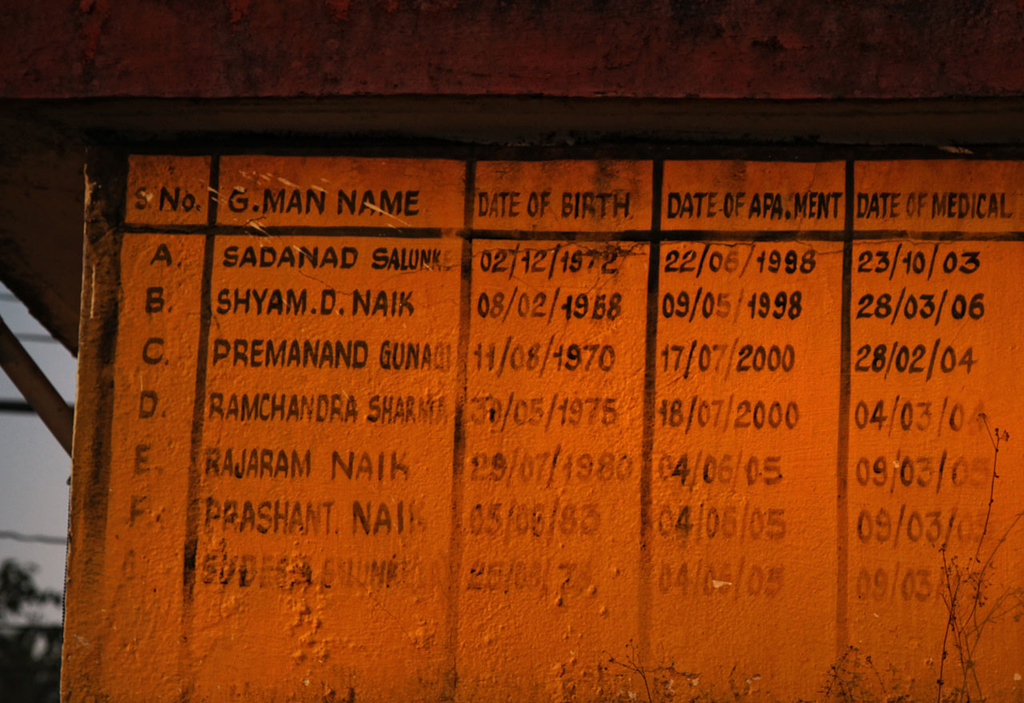 S No. G.MAN NAME DATE OF BIRTH DATE OF APA.MENT DATE OF MEDICAL
A. SADANAD SALUNK 02/12/1972 22/06/1998 23/10/03
B. SHYAM.D. NAIK 08/02/1968 09/05/1998 28/03/06
C. PREMANAND 11/08/1970 17/07/2000 28/02/04
D. RAMCHANDRA SHARMA 18/07/2000 04/03/04
E. RAJARAM NAIK 29/07/1980 04/06/05 09/03/05
F. PRASHANT. NAIK 04/06/05 09/03/05
04/06/05